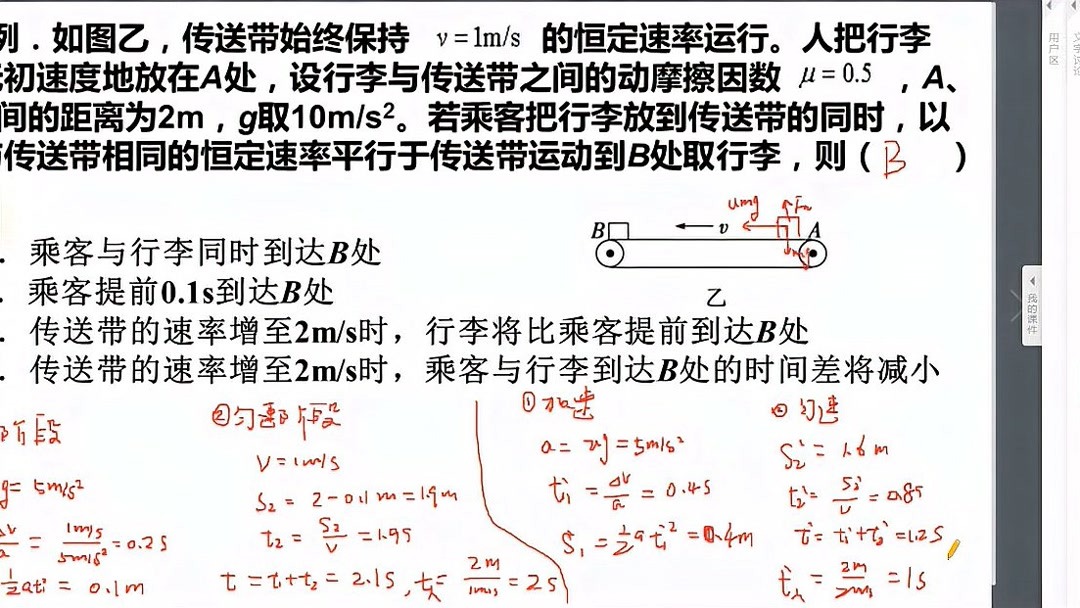 列．如图乙，传送带始终保持 v=1m/s 的恒定速率运行。人把行李
初速度地放在A处，设行李与传送带之间的动摩擦因数 μ=0.5 ，A、
间的距离为2m，g取10m/s²。若乘客把行李放到传送带的同时，以
传送带相同的恒定速率平行于传送带运动到B处取行李，则（ B ）
umg Fₙ
B v A
mg
乙
．乘客与行李同时到达B处
．乘客提前0.1s到达B处
．传送带的速率增至2m/s时，行李将比乘客提前到达B处
．传送带的速率增至2m/s时，乘客与行李到达B处的时间差将减小
阶段
g= 5m/s²
Δv/a = 1m/s / 5m/s² =0.2s
½at₁ = 0.1m
②匀速阶段
V=1m/s
S₂ = 2-0.1m=1.9m
t₂ = S₂/V =1.9s
t=t₁+t₂ = 2.1s , t人= 2m / 1m/s = 2s
①加速
a= ug=5m/s²
t₁' = Δv/a = 0.4s
S₁ = ½at₁'² =0.4m
② 匀速
S₂' = 1.6m
t₂'= S₂'/v =0.8s
t'= t₁'+t₂' =1.2s
t人' = 2m / 2m/s =1s
用户区
文字讨论
我的课件